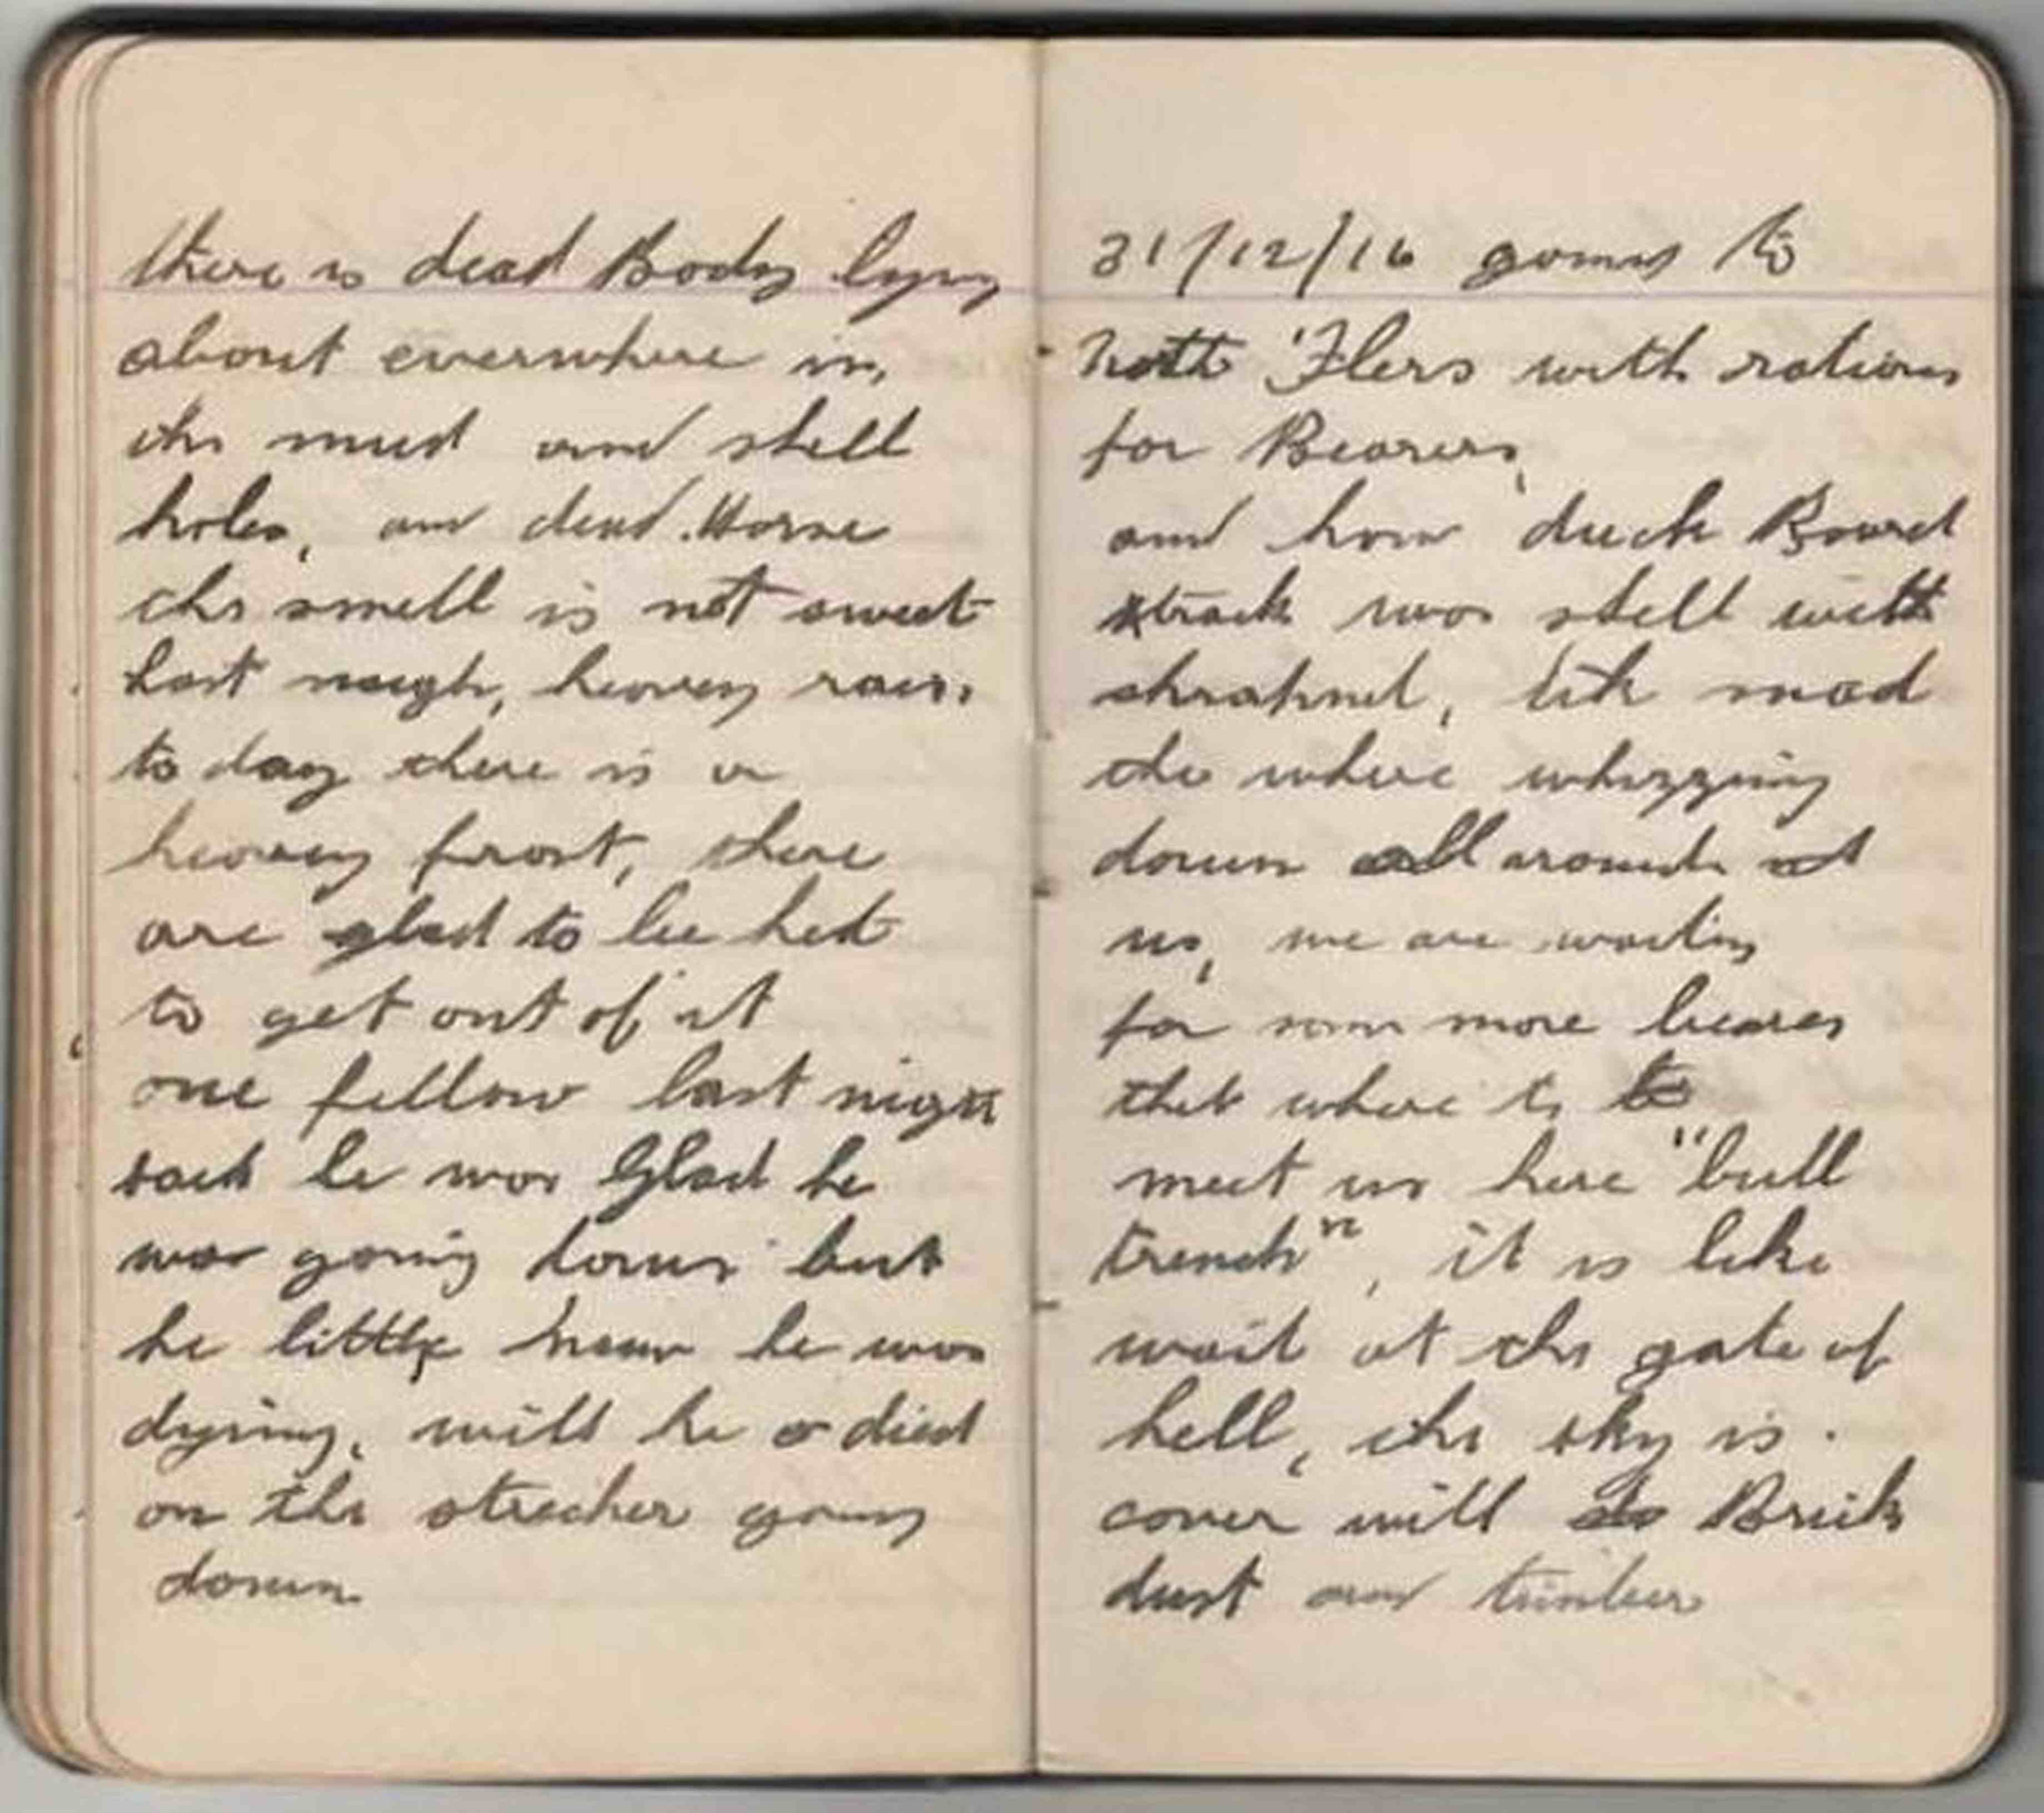 there is dead Body lying
about everwhere in,
the mud and shell
holes, and dead Horse
the smell is not sweet
last neigh, heavey rain,
to day there is a
heavey frost, there
are glad to be hed
to get out of it
one fellow last night
said he was Glad he
was going down but
he little knew he was
dyring, will he died
on the strecher going
down
31/12/16 going to
Noth 'Flers with rations
for Bearers,
and how duck Board
track was shell with
shrapnel, like mad
the where whizzing
down all around at
us, we are waiting
for some more beares
that where to
meet us here "bull
trench", it is like
wait at the gate of
hell, the sky is.
cover will Brick
dust and timber